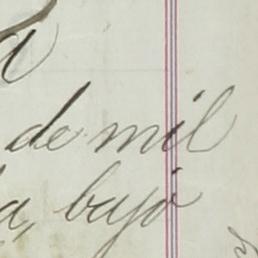 de mil
a, bajo